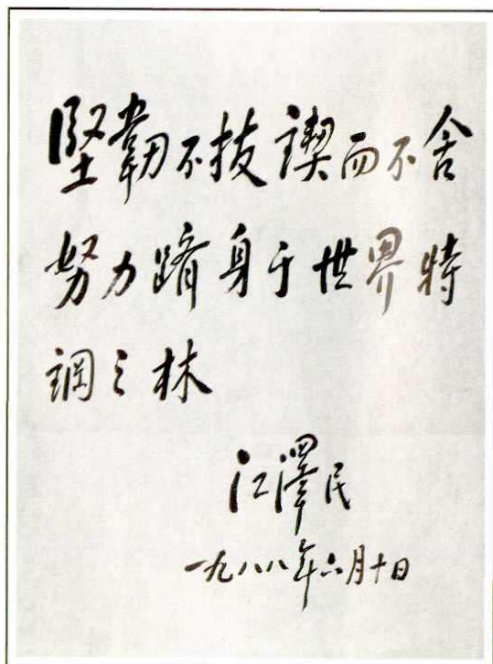 堅韌不拔锲而不舍
努力躋身于世界特
鋼之林
江澤民
一九八八年六月十日